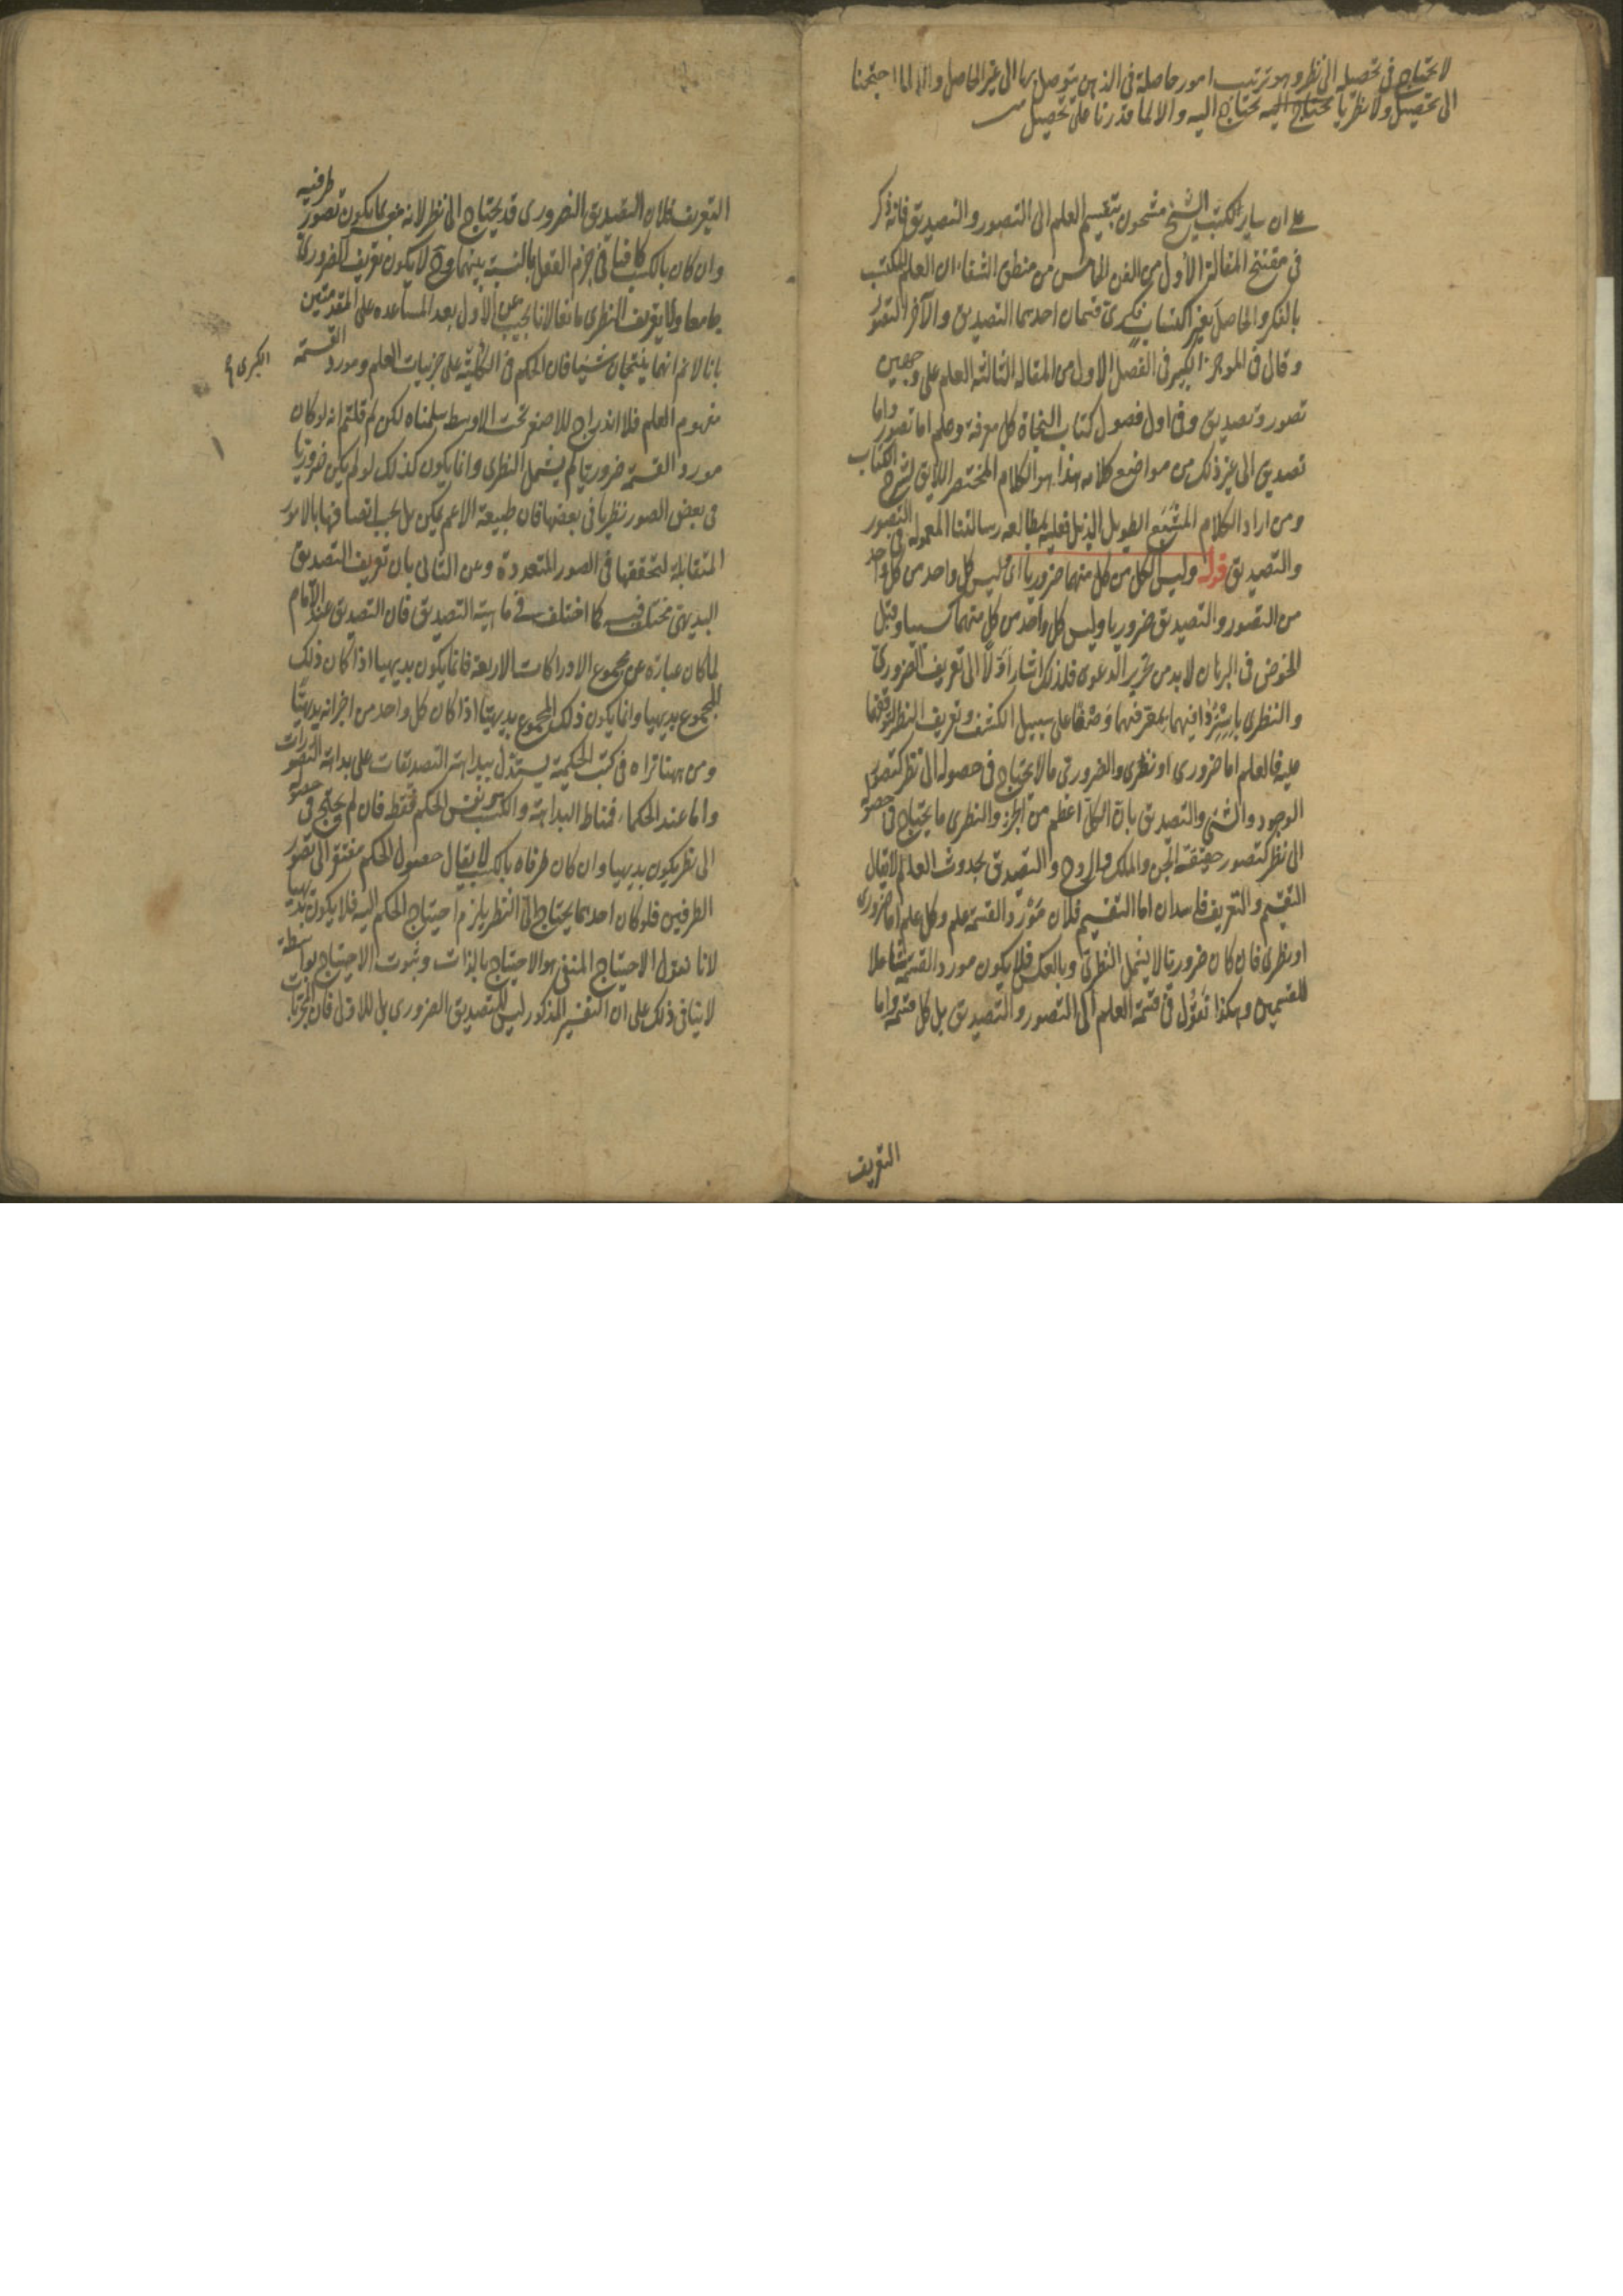 لا يحتاج في تحصيله الى نظر وهو ترتيب امور حاصلة في الذهن يتوصل بها الى غير الحاصل والا لما احتجنا
الى تحصيل ولا نظريا يحتاج اليه والا لما قدرنا على تحصيل
على ان ساير كتب الشيخ مشحون بتقسيم العلم الى التصور والتصديق فانه ذكر
في مفتتح المقالة الأولى من الفن الخامس من منطق الشفاء ان العلم المكتسب
بالفكر والحاصل بغير اكتساب فكرى قسمان احدهما التصديق والآخر التصور
وقال في الموجز الكبير في الفصل الاول من المقالة الثالثة العلم على وجهين
تصور وتصديق وفي اول فصول كتاب النجاة كل معرفة وعلم اما تصور واما
تصديق الى غير ذلك من مواضع كلامه هذا هو الكلام المختصر اللايق لشرح الكتاب
ومن اراد الكلام المشبع الطويل الذيل فعليه بمطالعه رسالتنا المعموله في التصور
والتصديق قوله وليس الكل من كل منهما ضروريا اى ليس كل واحد من كل واحد
من التصور والتصديق ضروريا وليس كل واحد من كل منهما كسبيا وقبل
الخوض في البرهان لا بد من تحرير الدعوى فلذلك اشار اوّلًا الى تعريف الضرورى
والنظرى
عليه فالعلم اما ضرورى او نظرى والضرورى ما لا يحتاج في حصوله الى نظر كتصور
الوجود والشئ والتصديق بان الكل اعظم من الجزء والنظرى ما يحتاج في حصوله
الى نظر كتصور حقيقة الجن والملك والروح والتصديق بحدوث العالم لا يقال
التقسيم والتعريف فاسدان اما التقسيم فلان مَوْرِد القسمة علم وكل علم اما ضرورى
او نظرى فان كان ضروريا لا يشمل النظرى وبالعكس فلا يكون مورد القسمة شاملا
للقسمين وهكذا نقول في قسمة العلم الى التصور والتصديق بل كل قسمة واما
التعريف
التعريف فلان التصديق الضرورى قد يحتاج الى نظر لانه هو ما يكون تصور طرفيه
وان كان بالكسب كافيا في جزم العقل بالنسبة بينهما وح لا يكون تعريف الضرورى
جامعا ولا تعريف النظرى مانعا لانا نجيب عن الأول بعد المساعده على المقدمتين
بانا لا نم انهما ينتجان شيئا فان الحكم في الكليّة على جزئيات العلم ومورد القسمة
الكبرى
مفهوم العلم فلا اندراج للاصغر تحت الاوسط سلمناه لكن لم قلتم انه لو كان
مورد القسمة ضروريا لم يشمل النظرى وانما يكون كذلك لو لم يكن ضروريا
في بعض الصور نظريا في بعضها فان طبيعة الاعم يمكن بل يجب اتصافها بالامور
المتقابلة لتحققها في الصور المتعددة وعن الثانى بان تعريف التصديق
البديهى مختلف فيه كما اختلف في ماهية التصديق فان التصديق عند الامام
لما كان عبارة عن مجموع الادراكات الاربعة فانما يكون بديهيا اذا كان ذلك
المجموع بديهيا وانما يكون ذلك المجموع بديهيّا اذا كان كل واحد من اجزائه بديهيّا
ومن ههنا تراه في كتب الحكمية يستدل ببداهة التصديقات على بداهة التصورات
واما عند الحكماء فمناط البداهة والكسب هو نفس الحكم فقط فان لم يحتج في حصوله
الى نظر يكون بديهيا وان كان طرفاه بالكسب لا يقال حصول الحكم مفتقر الى تصور
الطرفين فلو كان احدهما يحتاج الى النظر يلزم احتياج الحكم اليه فلا يكون بديهيا
لانا نقول الاحتياج المنفى هو الاحتياج بالذات وثبوت الاحتياج بواسطة
لا ينافى ذلك على ان التفسير المذكور ليس للتصديق الضرورى بل للاولى فان التجربيات